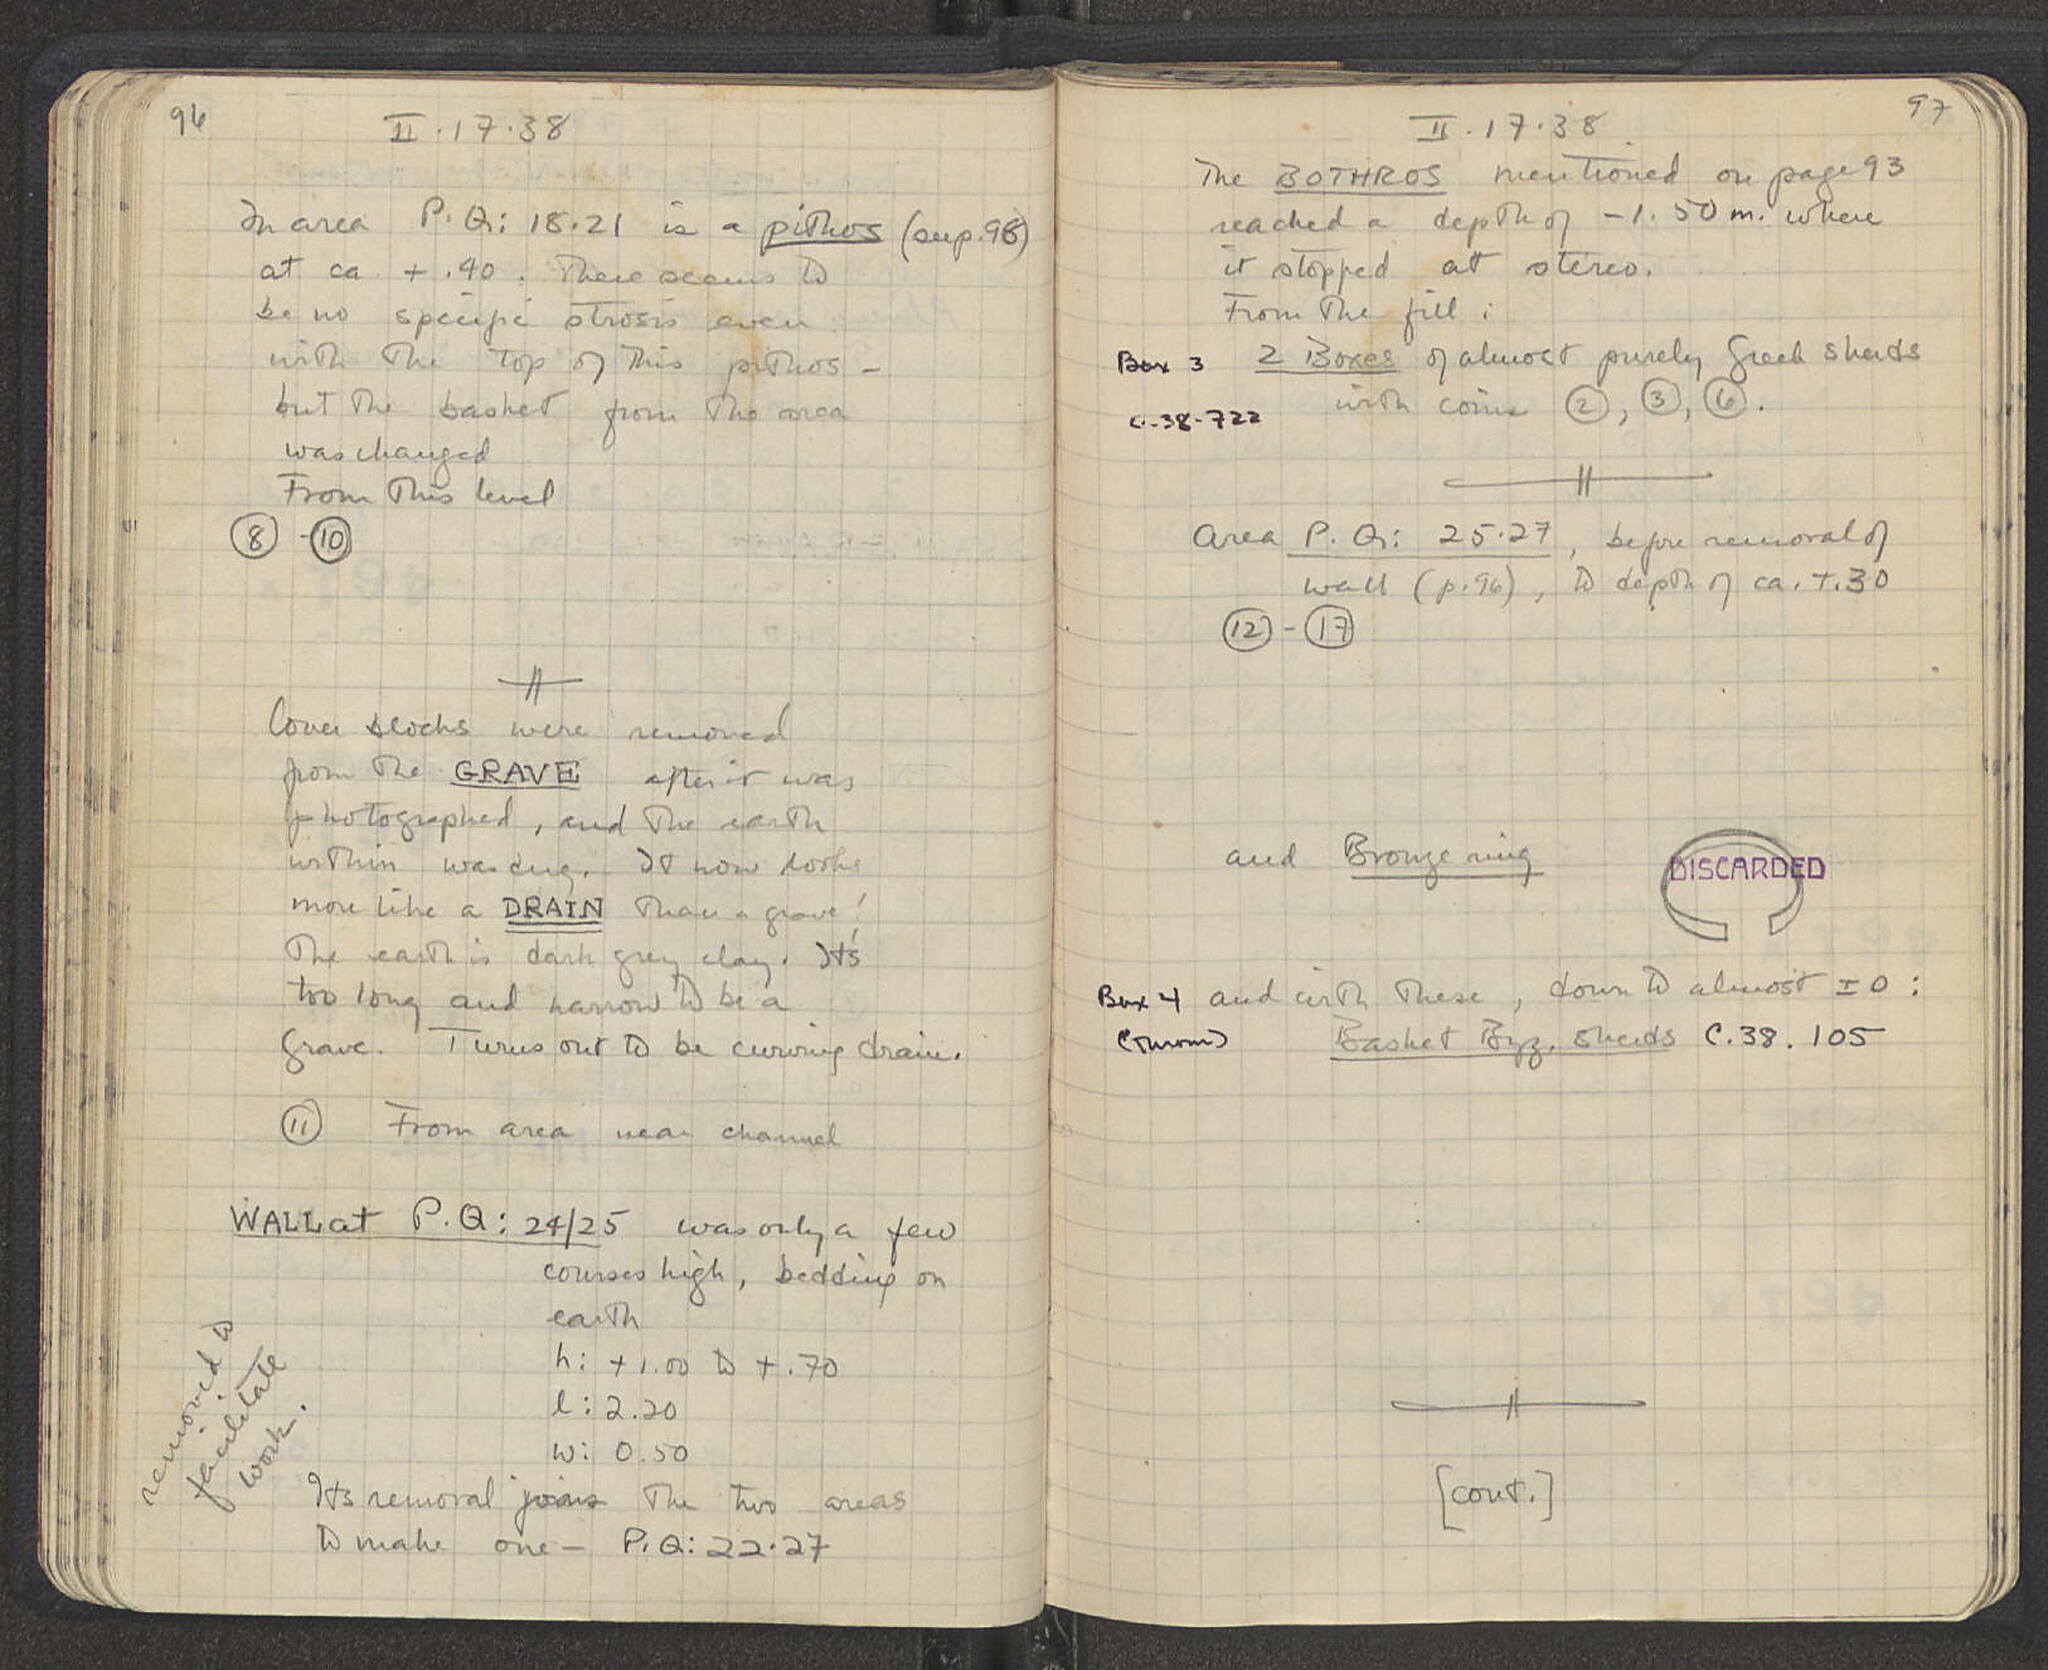 96
II.17.38
In area P.Q: 18.21 is a pithos (see p. 98)
at ca +.40. There seems to
be no specific strosis even
with the top of this pithos –
but the basket from the area
was changed
From this level
8 - 10
Cover blocks were removed
from the GRAVE after it was
photographed, and the earth
within was dug. It now looks
more like a DRAIN than a grave!
The earth is dark grey clay. It's
too long and narrow to be a
grave. Turns out to be curving drain.
11 From area near channel
WALL at P.Q: 24/25 was only a few
courses high, bedding on
earth
h: +1.00 to +.70
l: 2.20
w: 0.50
removed to
facilitate
work.
Its removal joins the two areas
to make one – P.Q: 22.27
97
II.17.38
The BOTHROS mentioned on page 93
reached a depth of -1.50 m. where
it stopped at stereo.
From the fill:
Box 3 2 Boxes of almost purely Greek sherds
C-38-722 with coins 2, 3, 6.
Area P.Q: 25.27, before removal of
wall (p.96), to depth of ca. +.30
12 - 17
and Bronze ring
DISCARDED
Box 4 and with these, down to almost ±0:
Basket Byz. sherds C.38.105
[cont.]